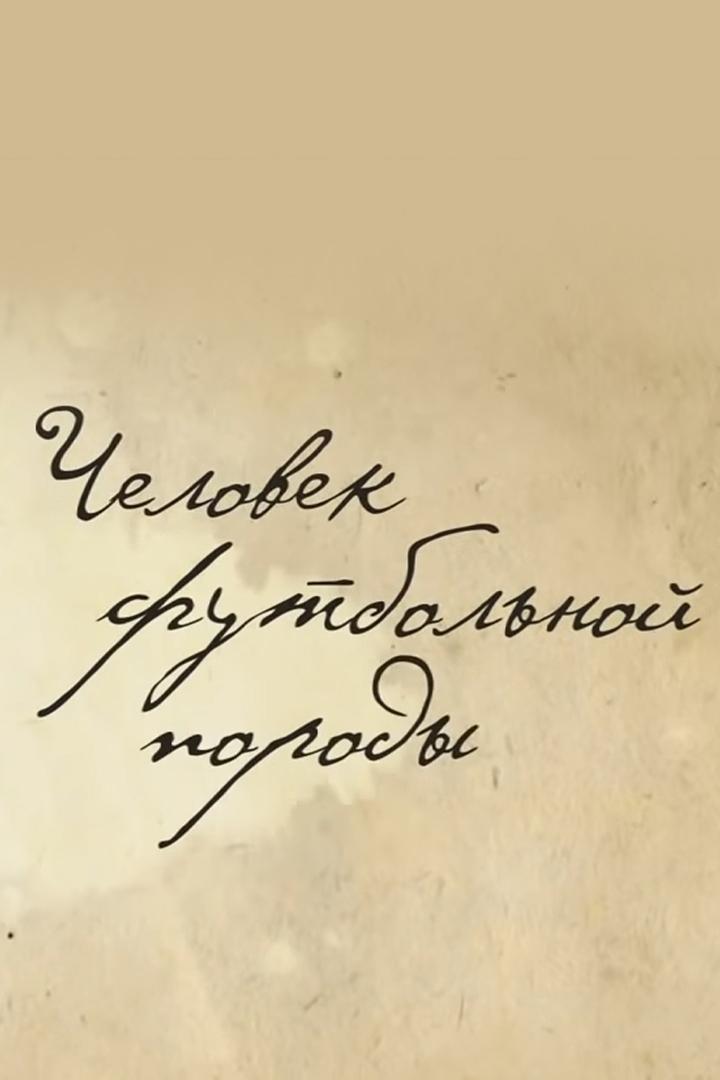 Человек
футбольной
породы